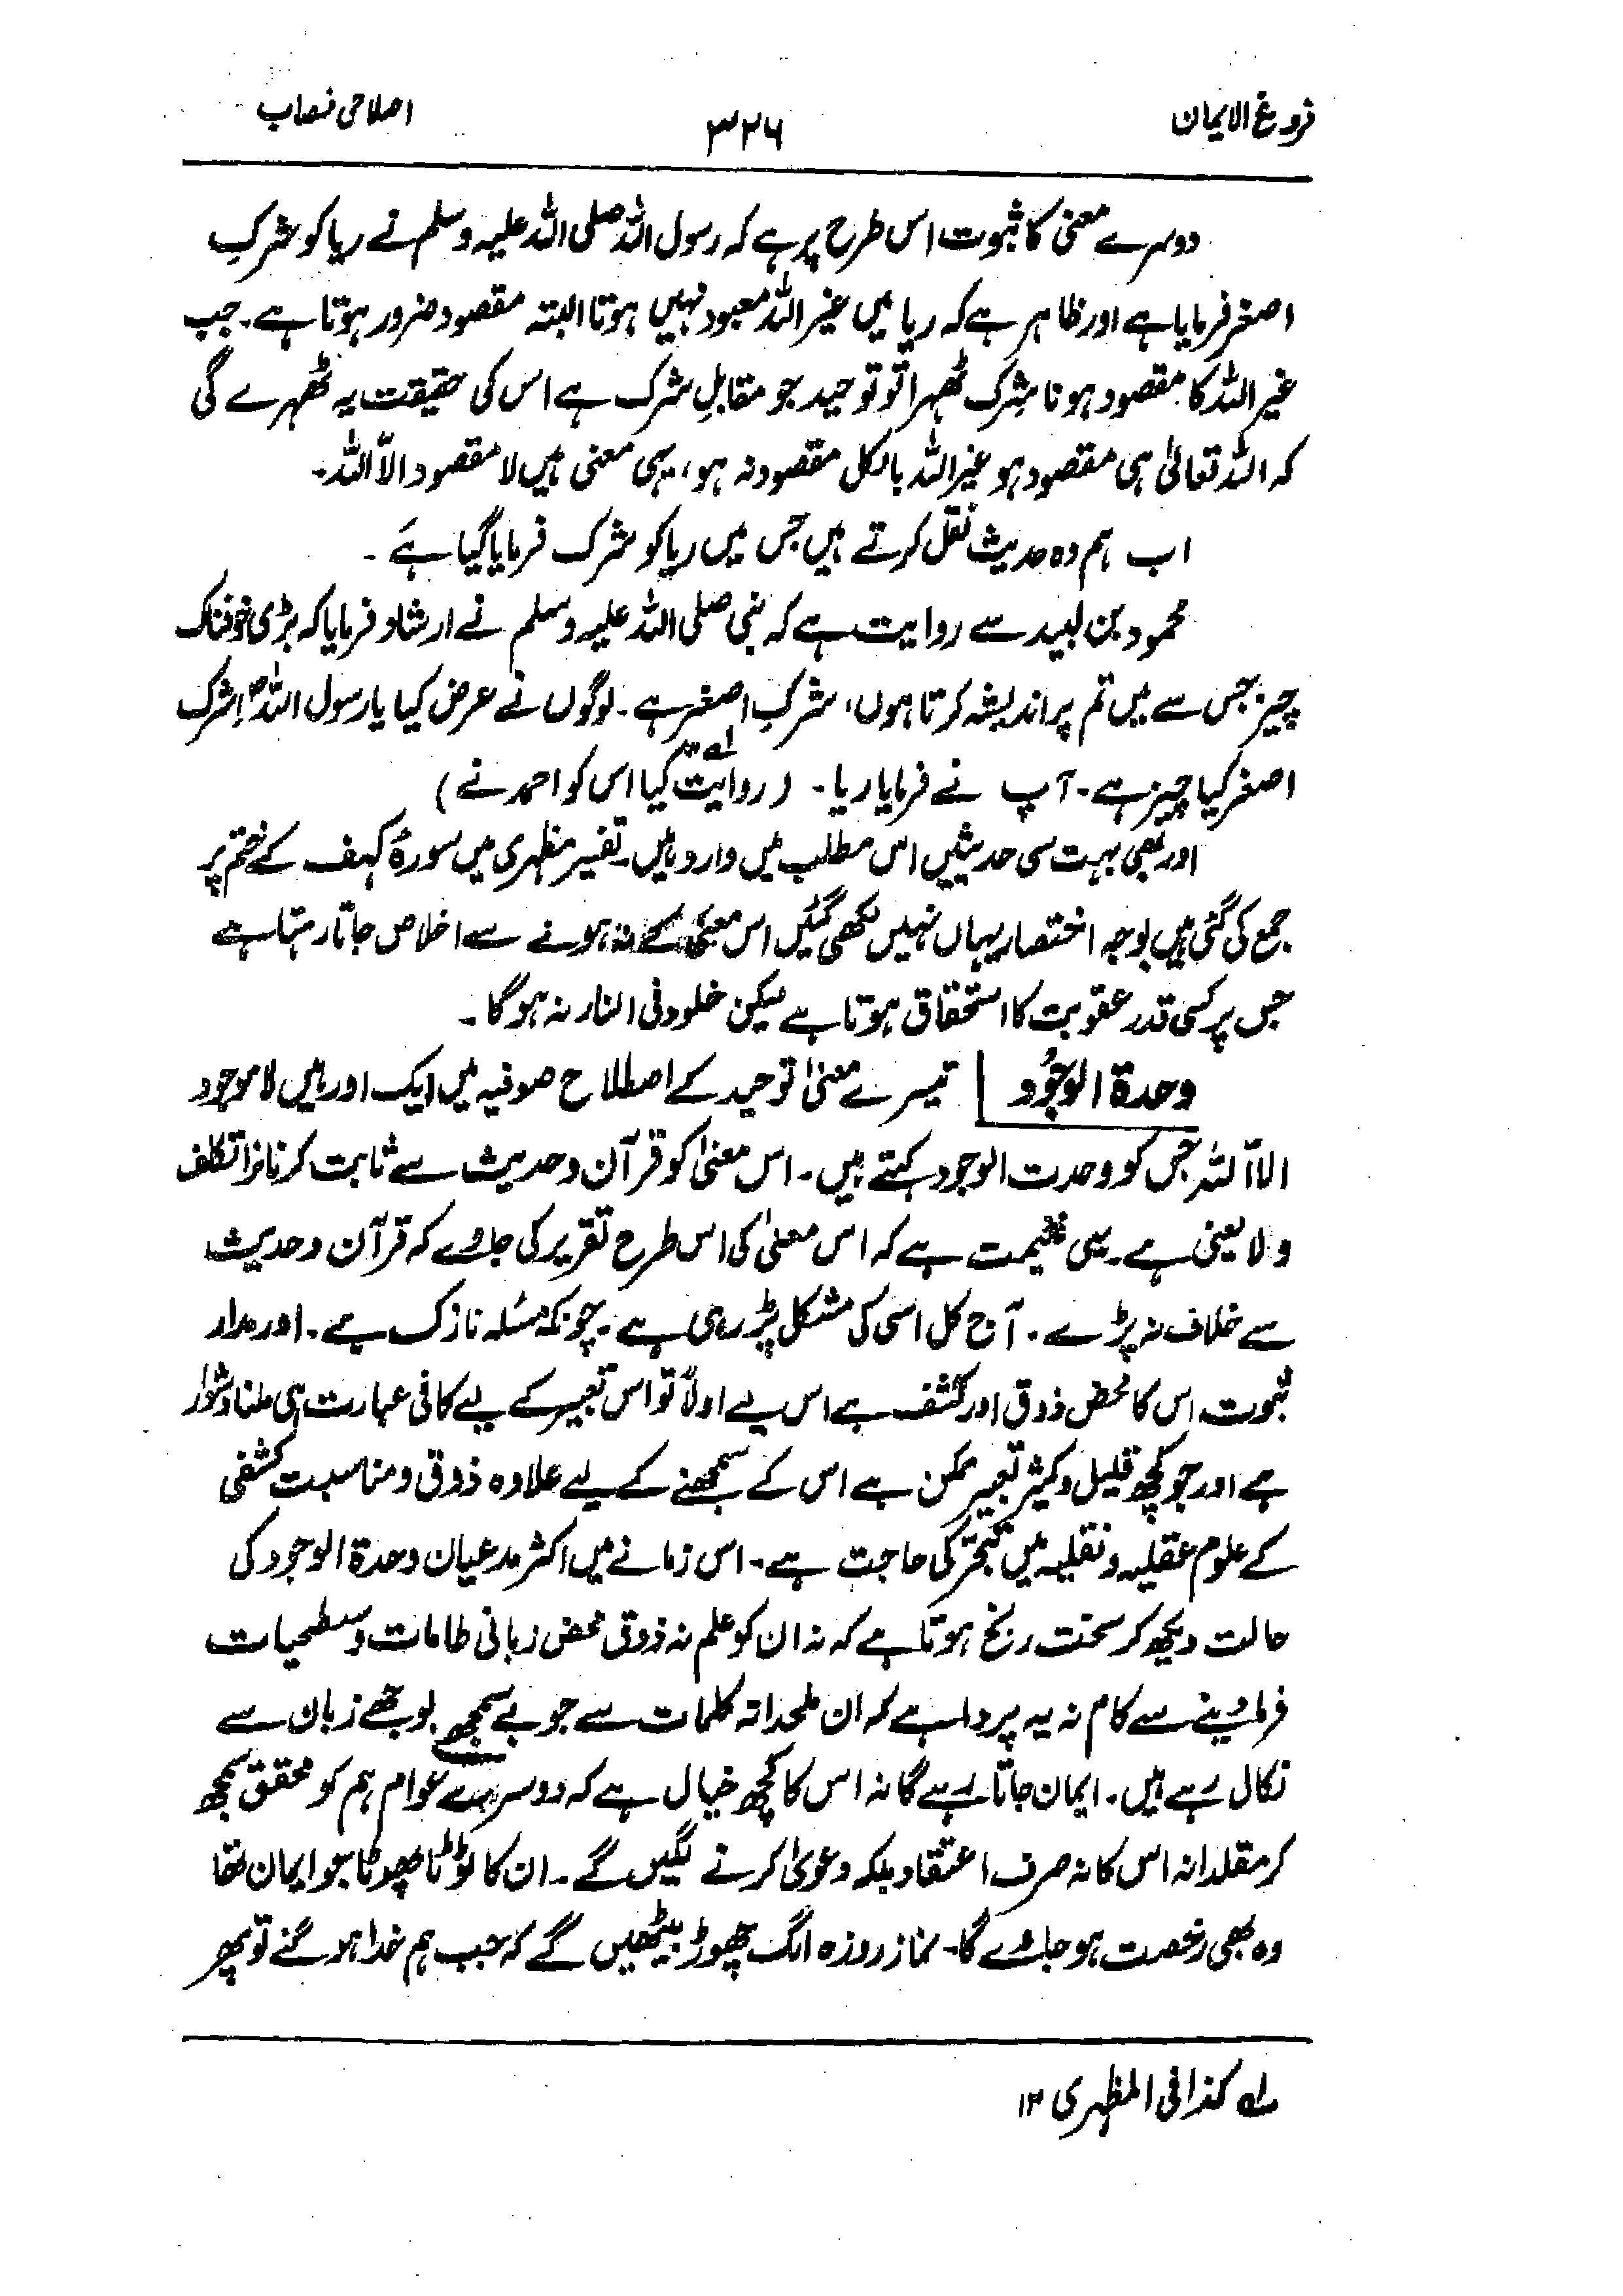 فروغ الایمان
۳۲۶
اصلاحی نصاب
دوسرے معنی کا ثبوت اس طرح پر ہے کہ رسول اللہ صلی اللہ علیہ وسلم نے ریا کو شرکِ
اصغر فرمایا ہے اور ظاہر ہے کہ ریا میں غیر اللہ معبود نہیں ہوتا البتہ مقصود ضرور ہوتا ہے۔ جب
غیر اللہ کا مقصود ہونا شرک ٹھہرا تو توحید جو مقابلِ شرک ہے اس کی حقیقت یہ ٹھہرے گی
کہ اللہ تعالیٰ ہی مقصود ہو غیر اللہ بالکل مقصود نہ ہو، یہی معنی ہیں لا مقصود الاّ اللہ۔
اب ہم وہ حدیث نقل کرتے ہیں جس میں ریا کو شرک فرمایا گیا ہے۔
محمود بن لبید سے روایت ہے کہ نبی صلی اللہ علیہ وسلم نے ارشاد فرمایا کہ بڑی خوفناک
چیز جس سے میں تم پر اندیشہ کرتا ہوں، شرکِ اصغر ہے۔ لوگوں نے عرض کیا یا رسول اللہؐ! شرک
اصغر کیا چیز ہے۔ آپ نے فرمایا ریا۔ (روایت کیا اس کو احمد نے)
اور بھی بہت سی حدیثیں اس مطلب میں وارد ہیں۔ تفسیر مظہری میں سورۂ کہف کے ختم پر
جمع کی گئی ہیں بوجہ اختصار یہاں نہیں لکھی گئیں اس معنی کے نہ ہونے سے اخلاص جاتا رہتا ہے
جس پر کسی قدر عقوبت کا استحقاق ہوتا ہے لیکن خلود فی النار نہ ہوگا۔
وحدۃ الوجُود | تیسرے معنیٰ توحید کے اصطلاح صوفیہ میں ایک اور ہیں لا موجود
الاّ اللہ جس کو وحدت الوجود کہتے ہیں۔ اس معنیٰ کو قرآن و حدیث سے ثابت کرنا نرا تکلف
و لا یعنی ہے۔ یہی غنیمت ہے کہ اس معنیٰ کی اس طرح تقریر کی جاوے کہ قرآن و حدیث
سے خلاف نہ پڑے۔ آج کل اسی کی مشکل پڑ رہی ہے۔ چونکہ مسئلہ نازک ہے۔ اور مدار
ثبوت اس کا محض ذوق اور کشف ہے اس لیے اولاً تو اس تعبیر کے لیے کافی عبارت ہی ملنا دشوار
ہے اور جو کچھ قلیل و کثیر تعبیر ممکن ہے اس کے سمجھنے کے لیے علاوہ ذوق و مناسبت کشفی
کے علوم عقلیہ و نقلیہ میں تبحّر کی حاجت ہے۔ اس زمانے میں اکثر مدعیان وحدۃ الوجود کی
حالت دیکھ کر سخت رنج ہوتا ہے کہ نہ ان کو علم نہ ذوق محض زبانی طامات و سطحیات
فرما دینے سے کام نہ یہ پروا ہے کہ ان ملحدانہ کلمات سے جو بے سمجھے بوجھے زبان سے
نکال رہے ہیں۔ ایمان جاتا رہے گا نہ اس کا کچھ خیال ہے کہ دوسرے عوام ہم کو محقق سمجھ
کر مقلدانہ اس کا نہ صرف اعتقاد بلکہ دعویٰ کرنے لگیں گے۔ ان کا ٹوٹا پھوٹا جو ایمان تھا
وہ بھی رخصت ہو جاوے گا۔ نماز روزہ الگ چھوڑ بیٹھیں گے کہ جب ہم خدا ہو گئے تو پھر
لہ کذا فی المظہری ۱۲